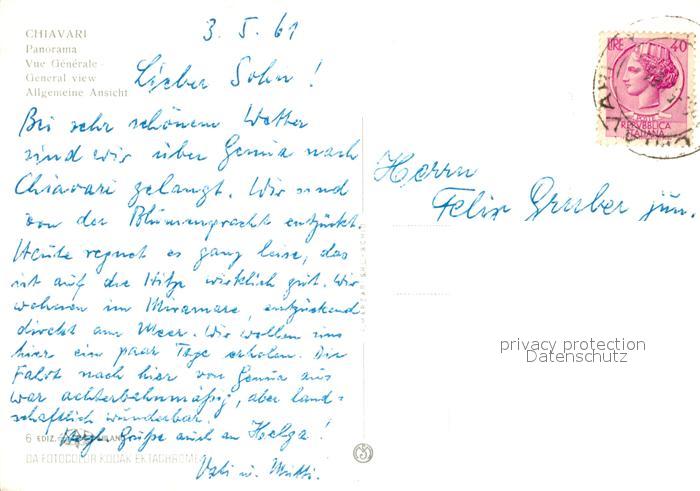 CHIAVARI
Panorama
Vue Générale -
General view
Allgemeine Ansicht
3. 5. 61
Lieber Sohn !
Bei sehr schönem Wetter
sind wir über Genua nach
Chiavari gelangt. Wir sind
von der Blumenpracht entzückt.
Heute regnet es ganz leise, das
ist auf die Hitze wirklich gut. Wir
wohnen im Miramare, entzückend
direkt am Meer. Wir wollen uns
hier ein paar Tage erholen. Die
Fahrt nach hier von Genua aus
war achterbahnmäßig, aber land=
schaftlich wunderbar.
Herzl. Grüße auch an Helga !
u. Mutti.
6 EDIZ. MILANO
DA FOTOCOLOR KODAK EKTACHROME
LIRE 40
POSTE
REPUBBLICA
ITALIANA
Herrn
Felix Gruber jun.
privacy protection
Datenschutz